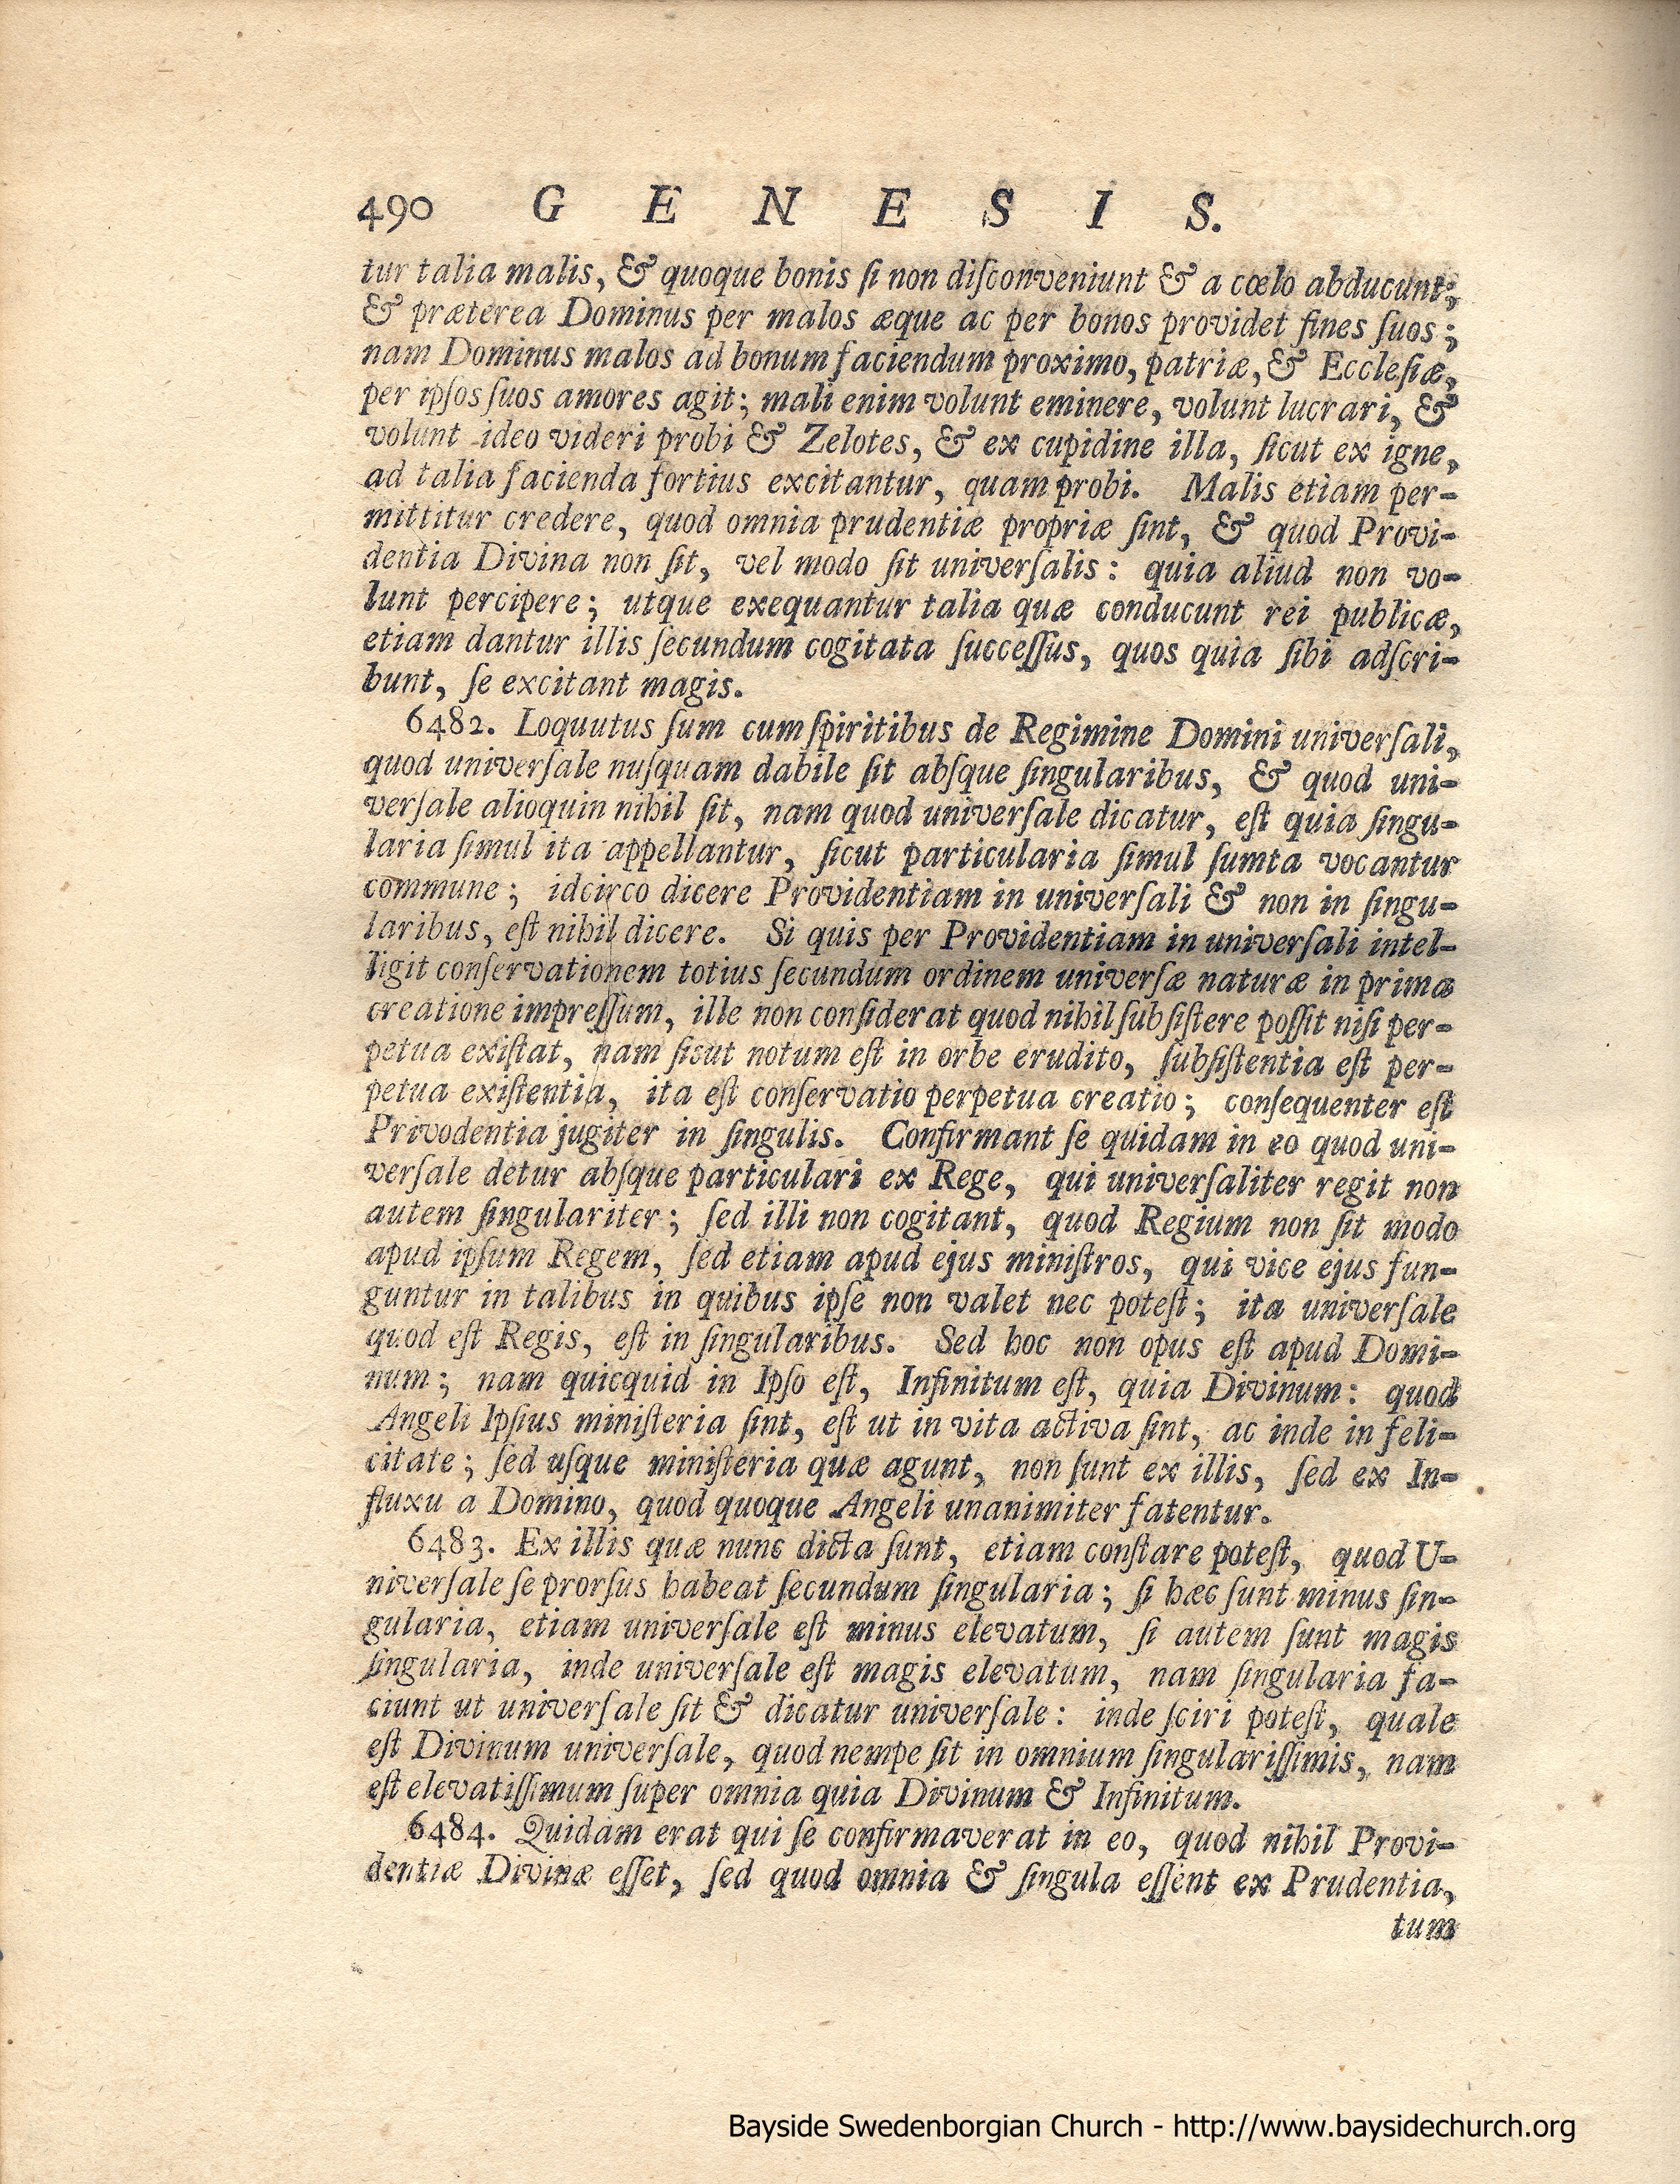 490 G E N E S I S.
tur talia malis, & quoque bonis ſi non diſconveniunt & a cœlo abducunt;
& præterea Dominus per malos æque ac per bonos providet fines ſuos;
nam Dominus malos ad bonum faciendum proximo, patriæ, & Eccleſiæ,
per ipſos ſuos amores agit; mali enim volunt eminere, volunt lucrari, &
volunt ideo videri probi & Zelotes, & ex cupidine illa, ſicut ex igne,
ad talia facienda fortius excitantur, quam probi. Malis etiam per-
mittitur credere, quod omnia prudentiæ propriæ ſint, & quod Provi-
dentia Divina non ſit, vel modo ſit univerſalis: quia aliud non vo-
lunt percipere; utque exequantur talia quæ conducunt rei publicæ,
etiam dantur illis ſecundum cogitata ſucceſſus, quos quia ſibi adſcri-
bunt, ſe excitant magis.
6482. Loquutus ſum cum ſpiritibus de Regimine Domini univerſali,
quod univerſale nuſquam dabile ſit abſque ſingularibus, & quod uni-
verſale alioquin nihil ſit, nam quod univerſale dicatur, eſt quia ſingu-
laria ſimul ita appellantur, ſicut particularia ſimul ſumta vocantur
commune; idcirco dicere Providentiam in univerſali & non in ſingu-
laribus, eſt nihil dicere. Si quis per Providentiam in univerſali intel-
ligit conſervationem totius ſecundum ordinem univerſæ naturæ in prima
creatione impreſſum, ille non conſiderat quod nihil ſubſiſtere poſſit niſi per-
petua exiſtat, nam ſicut notum eſt in orbe erudito, ſubſiſtentia eſt per-
petua exiſtentia, ita eſt conſervatio perpetua creatio; conſequenter eſt
Privodentia jugiter in ſingulis. Confirmant ſe quidam in eo quod uni-
verſale detur abſque particulari ex Rege, qui univerſaliter regit non
autem ſingulariter; ſed illi non cogitant, quod Regium non ſit modo
apud ipſum Regem, ſed etiam apud ejus miniſtros, qui vice ejus fun-
guntur in talibus in quibus ipſe non valet nec poteſt; ita univerſale
quod eſt Regis, eſt in ſingularibus. Sed hoc non opus eſt apud Domi-
num; nam quicquid in Ipſo eſt, Infinitum eſt, quia Divinum: quod
Angeli Ipſius miniſteria ſint, eſt ut in vita activa ſint, ac inde in feli-
citate; ſed uſque miniſteria quæ agunt, non ſunt ex illis, ſed ex In-
fluxu a Domino, quod quoque Angeli unanimiter fatentur.
6483. Ex illis quæ nunc dicta ſunt, etiam conſtare poteſt, quod U-
niverſale ſe prorſus habeat ſecundum ſingularia; ſi hæc ſunt minus ſin-
gularia, etiam univerſale eſt minus elevatum, ſi autem ſunt magis
ſingularia, inde univerſale eſt magis elevatum, nam ſingularia fa-
ciunt ut univerſale ſit & dicatur univerſale: inde ſciri poteſt, quale
eſt Divinum univerſale, quod nempe ſit in omnium ſingulariſſimis, nam
eſt elevatiſſimum ſuper omnia quia Divinum & Infinitum.
6484. Quidam erat qui ſe confirmaverat in eo, quod nihil Provi-
dentiæ Divinæ eſſet, ſed quod omnia & ſingula eſſent ex Prudentia,
tum
Bayside Swedenborgian Church - http://www.baysidechurch.org